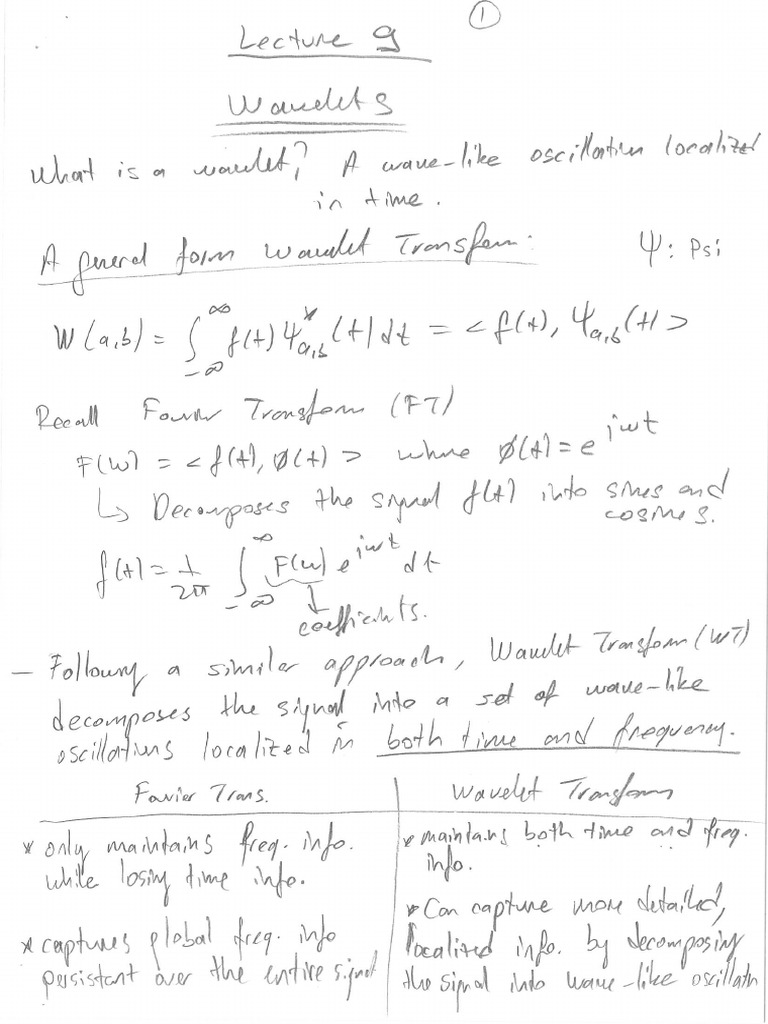 ①
Lecture 9
Wavelets
What is a wavelet? A wave-like oscillation localized
in time.
A general form Wavelet Transform: Ψ: Psi
W(a,b) = ∫_{-∞}^{∞} f(t) Ψ*_{a,b}(t) dt = <f(t), Ψ_{a,b}(t)>
Recall Fourier Transform (FT)
F(w) = <f(t), φ(t)> where φ(t) = e^{jwt}
↳ Decomposes the signal f(t) into sines and
cosines.
f(t) = 1/2π ∫_{-∞}^{∞} F(w) e^{jwt} dt
↓
coefficients.
– Following a similar approach, Wavelet Transform (WT)
decomposes the signal into a set of wave-like
oscillations localized in both time and frequency.
Fourier Trans. | Wavelet Transform
* only maintains freq. info.
while losing time info.
* captures global freq. info
persistant over the entire signal
* maintains both time and freq.
info.
* Can capture more detailed,
localized info. by decomposing
the signal into wave-like oscillatn